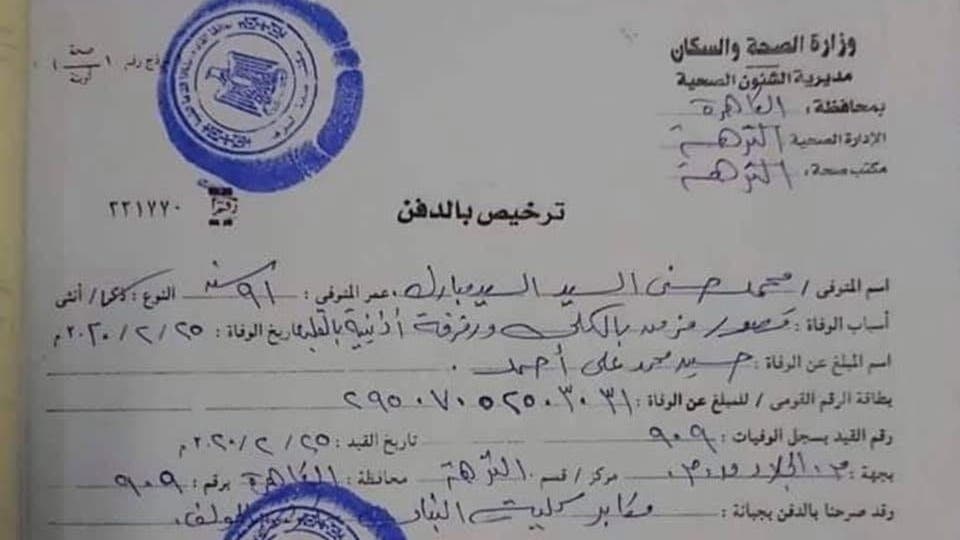 وزارة الصحة والسكان
مديرية الشئون الصحية
بمحافظة: القاهرة
الإدارة الصحية النزهة
مكتب صحة: النزهة
صحة
ترخيص بالدفن
رقم ٢٢١٧٧٠
اسم المتوفى / محمد حسنى السيد السيد مبارك عمر المتوفى: ٩١ سنة النوع: ذكر / أنثى
أسباب الوفاة: قصور مزمن بالكلى ورفرفة أذنية بالقلب تاريخ الوفاة: ٢٥ / ٢ / ٢٠٢٠ م
اسم المبلغ عن الوفاة: سيد محمد على أحمد
بطاقة الرقم القومى / للمبلغ عن الوفاة: ٢٩٥٠٧٠٥٢٥٠٣٠٣١
رقم القيد بسجل الوفيات: ٩٠٩ تاريخ القيد: ٢٥ / ٢ / ٢٠٢٠ م
بجهة: م. الجلاء مركز / قسم النزهة محافظة: القاهرة برقم: ٩٠٩
وقد صرحنا بالدفن بجبانة: مقابر كلية البنات